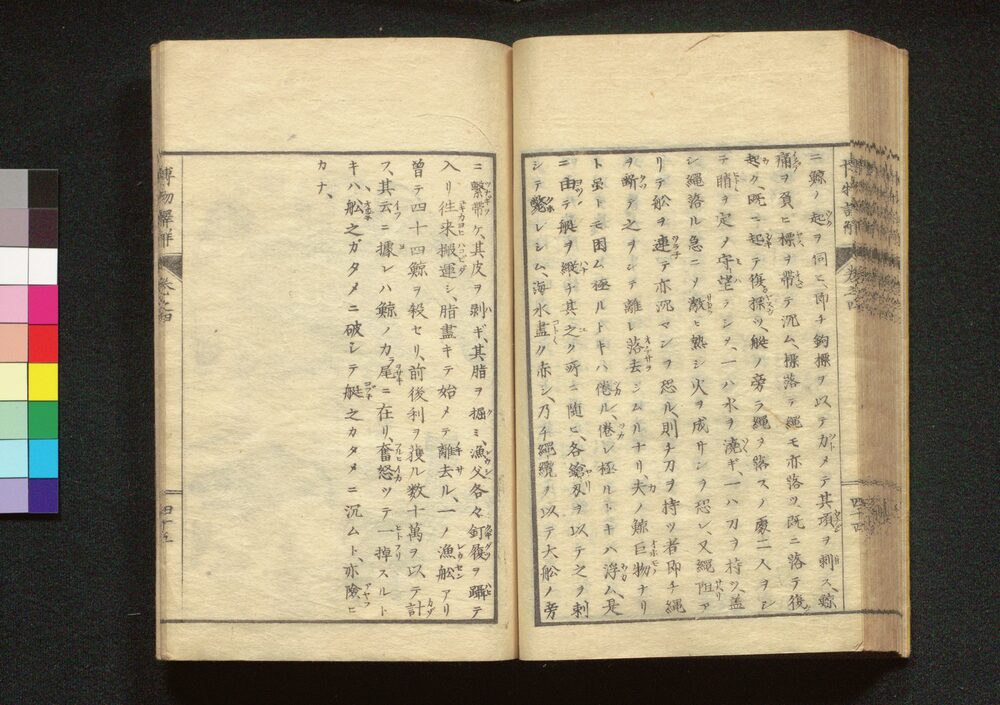 ニ鯨ノ起ヲ伺ヒ、即チ鉤標ヲ以テカメテ其項ヲ刺ス、鯨
痛ヲ負ヒ標ヲ帯テ沉ム、標落テ縄モ亦落ツ、既ニ落テ復
起ク、既ニ起テ復標ツ、艇ノ旁ラ縄ヲ落スノ處二人ヲシ
テ睛ヲ定メ守望テシメ、一ハ水ヲ澆ギ、一ハ刀ヲ持ツ、盖
シ縄落ル急ニメ激ヒ熱シ火ヲ成サンヲ恐レ、又縄阻ア
リテ舩ヲ連テ亦沉マンヲ恐ル、則チ刀ヲ持ツ者即チ縄
ヲ断テ之ヲシテ離レ落去シムルナリ、夫ノ鯨巨物ナリ
ト虽トモ困ム極ルトキハ倦ル、倦レ極ルトキハ浮ム、是
ニ由テ艇ヲ縦チ其之ク所ニ随ヒ、各鎗刄ヲ以テ之ヲ刺
シテ斃レシム、海水盡ク赤シ、乃チ縄纜ヲ以テ大舩ノ旁
四十四
ニ繋帶ケ、其皮ヲ剥ギ、其脂ヲ掘ミ、漁父各々釘履ヲ躡テ
入リ往来搬運シ、脂盡キテ始メテ離去ル、一ノ漁舩アリ
曽テ四十四鯨ヲ殺セリ、前後利ヲ獲ル数十萬ヲ以テ計
フ、其云ニ據レハ鯨ノカ尾ニ在リ、奮怒ツテ一掉スルト
キハ舩之ガタメニ破レテ艇之カタメニ沉ムト、亦險ヒ
カナ、
博物解 卷之四
四十五